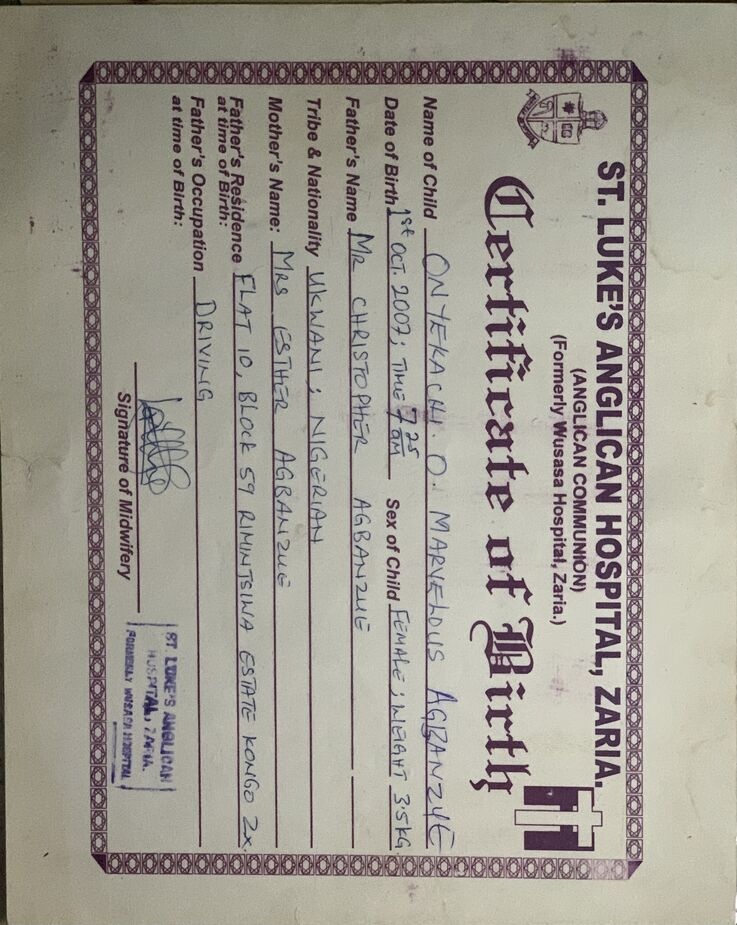 ST. LUKE'S ANGLICAN HOSPITAL, ZARIA.
(ANGLICAN COMMUNION)
(Formerly Wusasa Hospital, Zaria.)
Certificate of Birth
Name of Child ONYEKACHI. O. MARVELOUS AGBANZUE
Date of Birth 1st OCT. 2007; TIME 7 25 am Sex of Child FEMALE; WEIGHT 3.5KG
Father's Name MR CHRISTOPHER AGBANZUE
Tribe & Nationality UKWANI; NIGERIAN
Mother's Name: MRS ESTHER AGBANZUE
Father's Residence at time of Birth: FLAT 10, BLOCK 59 RIMINTSIWA ESTATE KONGO Zx.
Father's Occupation at time of Birth: DRIVING
Signature of Midwifery
ST. LUKE'S ANGLICAN
HOSPITAL, ZARIA.
FORMERLY WUSASA HOSPITAL